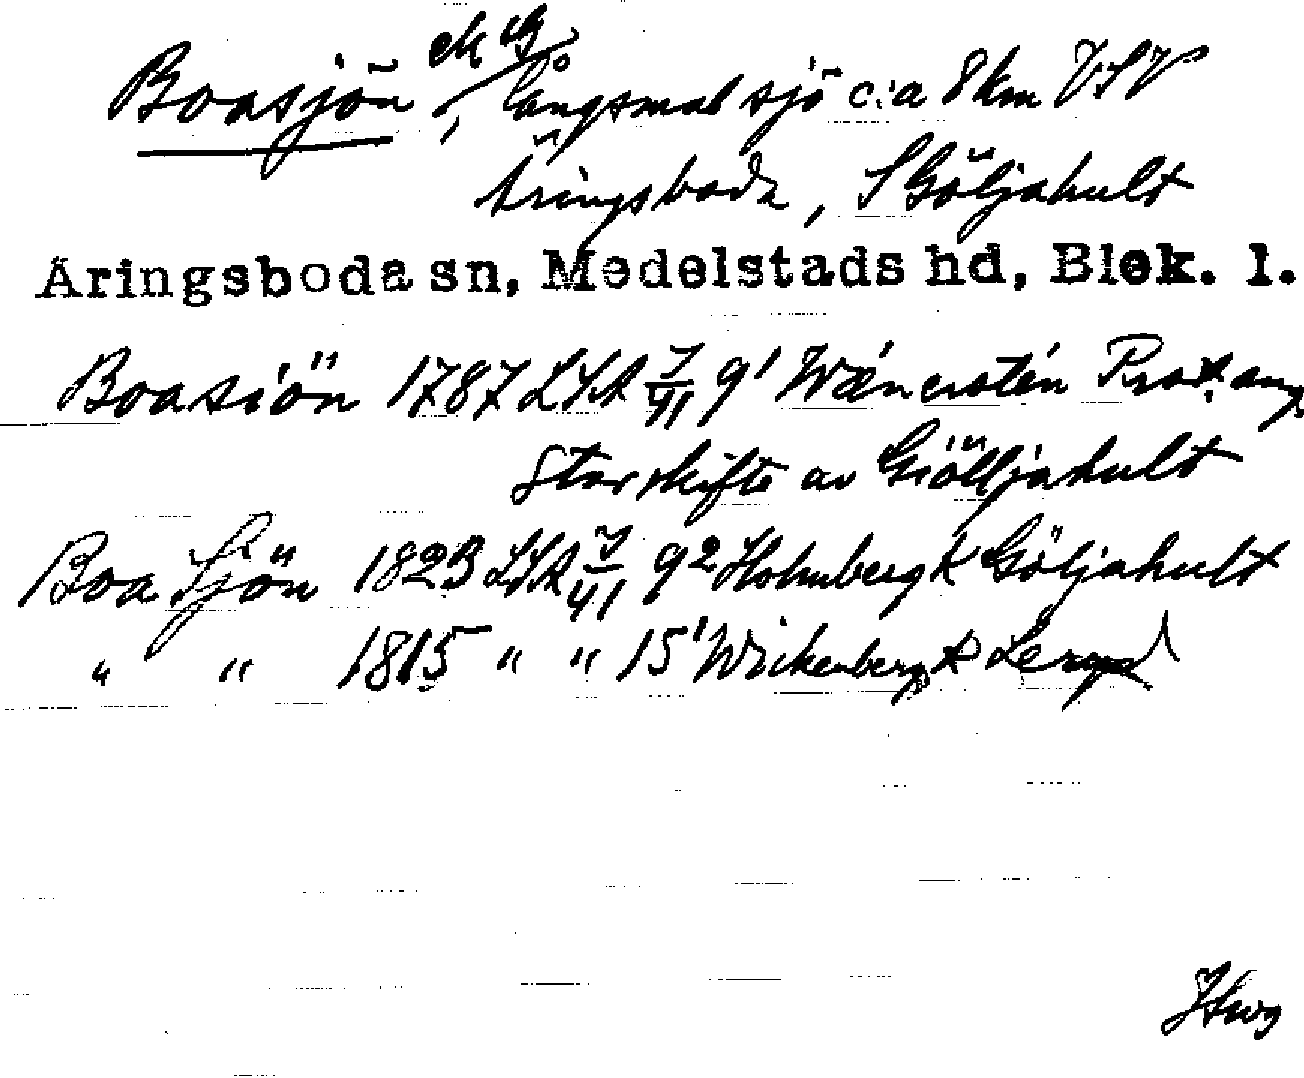 Boasjön, ek G långsmal sjö c:a 8 km VSV
Äringsboda, S Göljahult
Äringsboda sn, Medelstads hd, Blek. l.
Boasiön 1787 LSA 9¹ Wænerstén Prot. ang.
Storskifte av Giölljahult
Boa Sjön 1823 LSA 9² Holmberg k Göljahult
" " 1815 " " 15¹ Wickenberg k